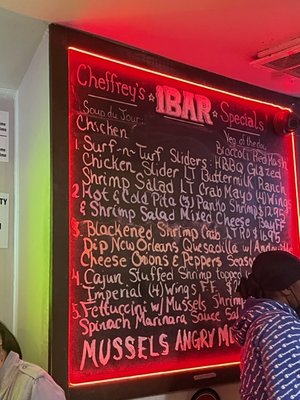 Cheffrey's 1BAR Specials
Soup du Jour: Veg of the day
Chicken Broccoli Red Hash
1. Surf-n-Turf Sliders: HBBQ Glazed
Chicken Slider LT Buttermilk Ranch
Shrimp Salad LT Crab Mayo (4) Wings
2. Hot & Cold Pita (3) Panko Shrimp
& Shrimp Salad Mixed Cheese Buff
3. Blackened Shrimp Crab LTRO $
Dip New Orleans Quesadilla w/
Cheese Onions & Peppers
4. Cajun Stuffed Shrimp topped
Imperial (4) Wings FF.
5. Fettuccini w/ Mussels Shrimp
Spinach Marinara Sauce
MUSSELS ANGRY